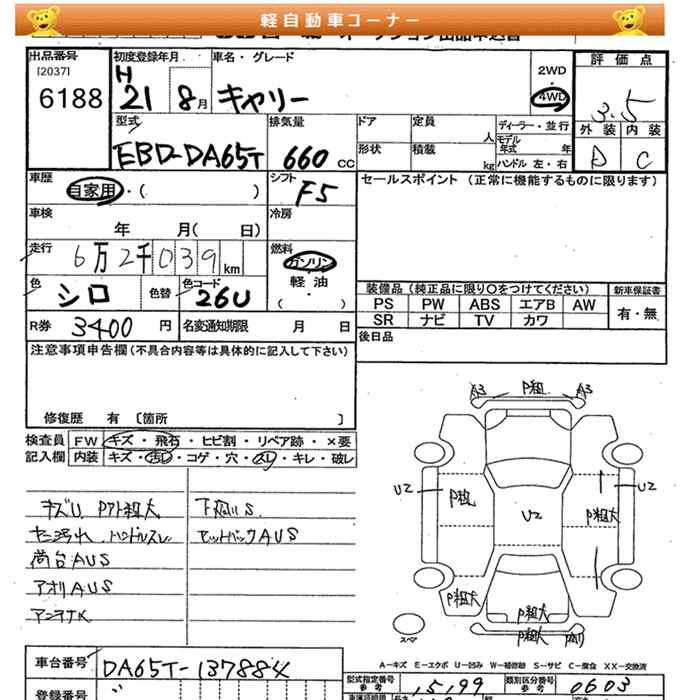 軽自動車コーナー
出品番号
[2037]
6188
初度登録年月
H
21 8月
車名・グレード
キャリー
2WD
4WD
評価点
3.5
外装 内装
D C
型式
EBD-DA65T
排気量
660 CC
ドア
定員
人
ディーラー・並行
モデル年式 年
形状
積載
kg
ハンドル 左・右
車歴
自家用・( )
シフト
F5
セールスポイント (正常に機能するものに限ります)
車検
年 月( 日)
冷房
走行
6万2千039km
燃料
ガソリン
・
軽油
・
( )
色
シロ
色替
色コード
26U
装備品(純正品に限り〇をつけてください)
新車保証書
PS PW ABS エアB AW
SR ナビ TV カワ
有・無
R券 3400 円
名変通知期限 月 日
後日品
注意事項申告欄(不具合内容等は具体的に記入して下さい)
修復歴 有 〔箇所 〕
検査員
記入欄
FW キズ・飛石・ヒビ割・リペア跡・×要
内装 キズ・汚レ・コゲ・穴・スレ・キレ・破レ
キズU Pアト粗大
下廻りS
ハンドルスレ
セットバックAUS
荷台AUS
アオリAUS
A3 P粗 A3
U2 P粗 U2 P粗大 U2
P粗大
P粗大
P粗大
スペア
A-キズ E-エクボ U-凹み W-補修跡 S-サビ C-腐食 XX-交換済
車台番号
DA65T-137884
型式指定番号
参考
15199
類別区分番号
参考
0603
登録番号